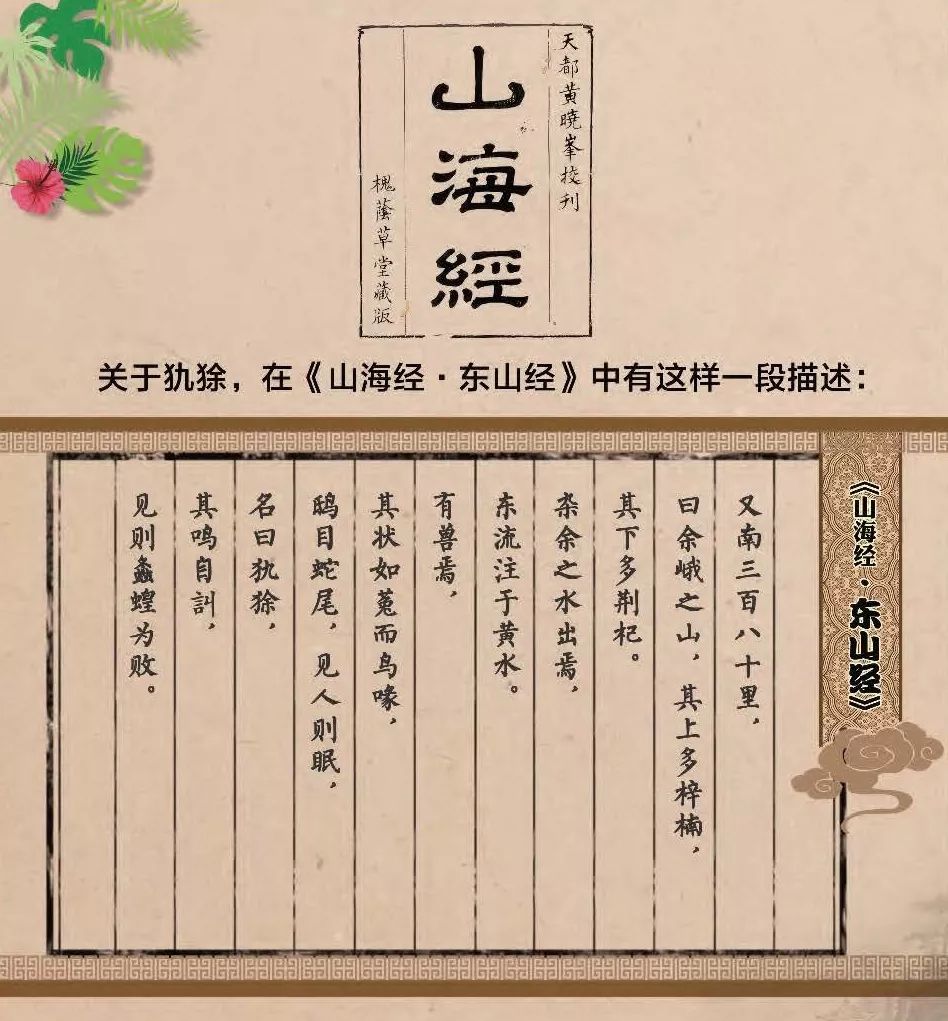 天都黄曉峯挍刊
山海經
槐蔭草堂藏版
关于犰狳，在《山海经·东山经》中有这样一段描述：
《山海经·东山经》
又南三百八十里，
曰余峨之山，其上多梓楠，
其下多荆杞。
杂余之水出焉，
东流注于黄水。
有兽焉，
其状如菟而鸟喙，
鸱目蛇尾，见人则眠，
名曰犰狳，
其鸣自訆，
见则螽蝗为败。